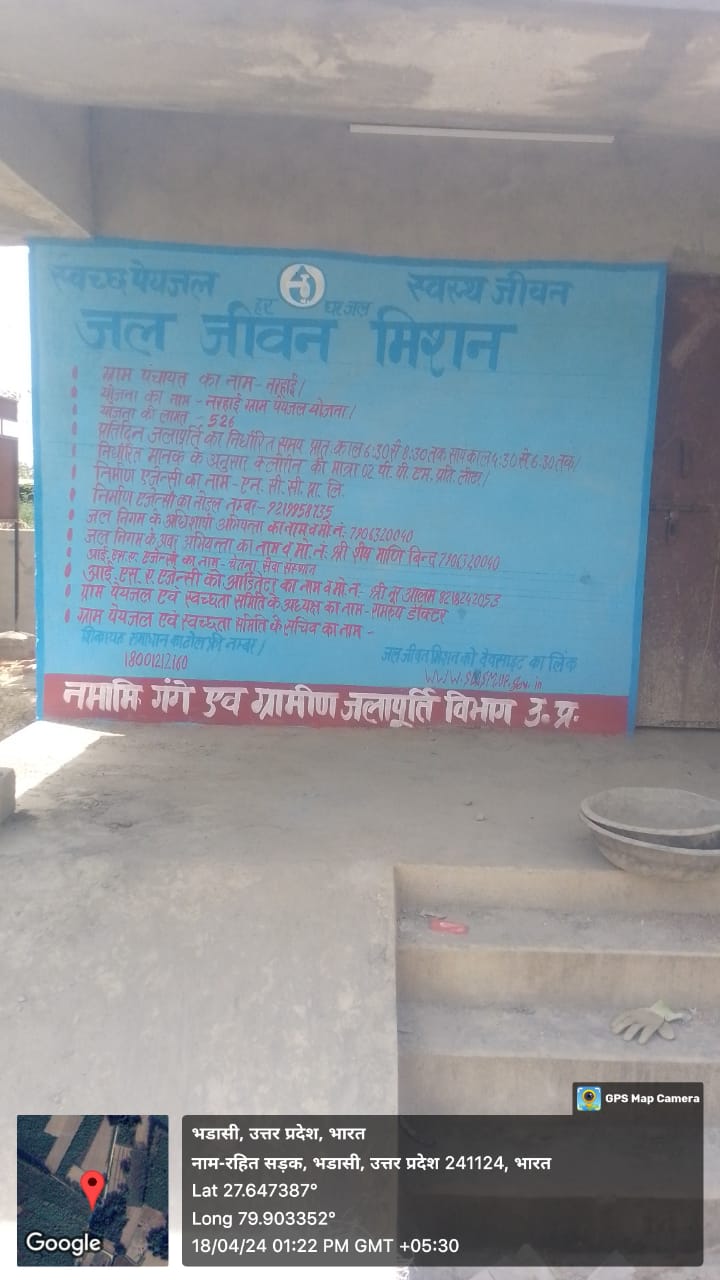 स्वच्छ पेयजल स्वस्थ जीवन
हर घर जल
जल जीवन मिशन
ग्राम पंचायत का नाम - नरहाई।
योजना का नाम - नरहाई ग्राम पेयजल योजना।
योजना की लागत - 526
प्रतिदिन जलापूर्ति का निर्धारित समय प्रात: काल 6:30 से 8:30 तक सायं काल 4:30 से 6:30 तक।
निर्धारित मानक के अनुसार क्लोरीन की मात्रा 02 पी. पी. एम. प्रति लीटर।
निर्माण एजेन्सी का नाम - एन. सी. सी. प्रा. लि.
निर्माण एजेन्सी का नोडल नम्बर - 9219958735
जल निगम के अधिशाषी अभियन्ता का नाम व मो. नं. 7906320040
जल निगम के अवर अभियन्ता का नाम व मो. नं. श्री दीप मणि बिन्द 7906320040
आई. एस. ए. एजेन्सी का नाम - चेतना सेवा संस्थान
आई. एस. ए. एजेन्सी की का नाम व मो. नं. श्री नूर आलम 8218242053
ग्राम पेयजल एवं स्वच्छता समिति के अध्यक्ष का नाम - डॉक्टर
ग्राम पेयजल एवं स्वच्छता समिति के सचिव का नाम -
शिकायत समाधान का टोल फ्री नम्बर।
18001212160
जल जीवन मिशन की वेवसाइट का लिंक
नमामि गंगे एव ग्रामीण जलापूर्ति विभाग उ. प्र.
GPS Map Camera
भडासी, उत्तर प्रदेश, भारत
नाम-रहित सड़क, भडासी, उत्तर प्रदेश 241124, भारत
Lat 27.647387°
Long 79.903352°
18/04/24 01:22 PM GMT +05:30
Google